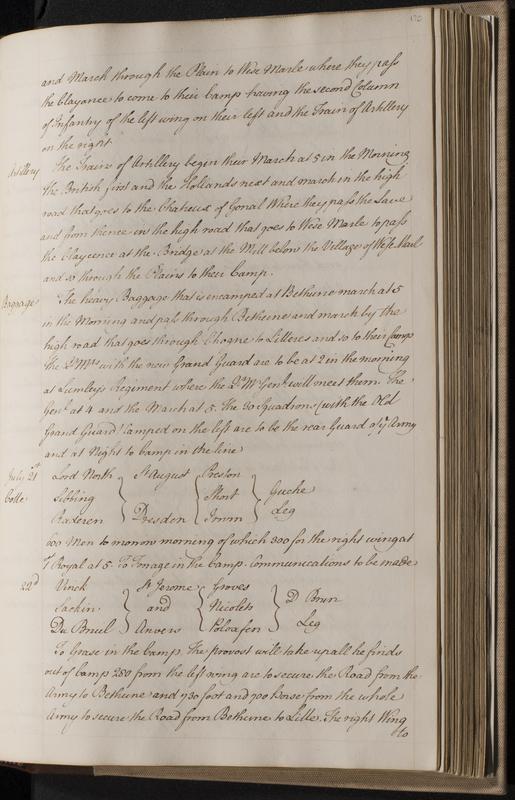 170
and March through the Plain to West Marle where they pass
the Clayance to come to their Camp having the second Column
of Infantry of the left wing on their left and the Train of Artillery
on the right.
Artillery The Trains of Artillery begin their March at 5 in the Morning
the British first and the Hollands next and march in the high
road that goes to the Chatieux of Gonal Where they pass the same
and from thence in the high road that goes to West Marle to pass
the Clayence at the Bridge at the Mill below the Village of West Marl
and so through the Plains to their Camp.
Baggage The heavy Baggage that is encamped at Bethune march at 5
in the Morning and pass through Bethune and march by the
high road that goes through Choque to Lilleres and so to their Camp
The Qr Mrs with the new Grand Guard are to be at 2 in the morning
at Lumley's Regiment where the Qr Mr Genl will meet them. The
Genl at 4 and the March at 5. The 30 Squadrons (with the Old
Grand Guard) Camped on the left are to be the rear Guard of ye Army
and at Night to Camp in the line
July 21st Lord North } St August { Preston
Cotte Sibbing { Short } Guche
Raderen } Dresden { Irwin } Leg
600 Men to morrow morning of which 300 for the right wing at
ye Royal at 5. To Forrage in the Camp. Communications to be made
22d Vinck } St Jerome { Groves
Sackin } and { Nicolets } D Brun
Du Breuil } Anvers { Poloafen } Leg
To Grase in the Camp. The provost will take up all he finds
out of Camp 250 from the left wing are to secure the Road from the
Army to Bethune and 730 foot and 700 horse from the whole
Army to secure the Road from Bethune to Lille. The right Wing
to